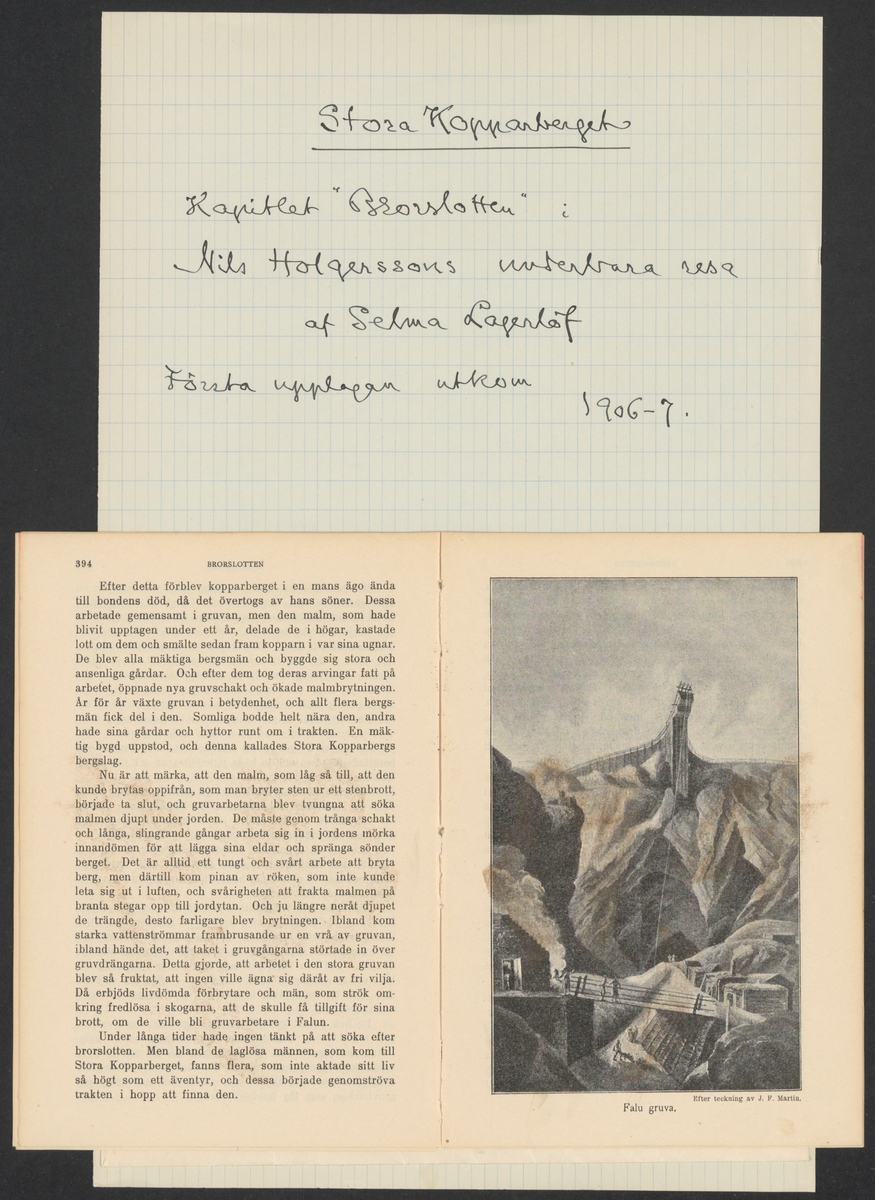 Stora Kopparberget
Kapitlet "Brorslotten" i
Nils Holgerssons underbara resa
af Selma Lagerlöf
Första upplagan utkom
1906-7.
394 BRORSLOTTEN
Efter detta förblev kopparberget i en mans ägo ända
till bondens död, då det övertogs av hans söner. Dessa
arbetade gemensamt i gruvan, men den malm, som hade
blivit upptagen under ett år, delade de i högar, kastade
lott om dem och smälte sedan fram kopparn i var sina ugnar.
De blev alla mäktiga bergsmän och byggde sig stora och
ansenliga gårdar. Och efter dem tog deras arvingar fatt på
arbetet, öppnade nya gruvschakt och ökade malmbrytningen.
År för år växte gruvan i betydenhet, och allt flera bergs-
män fick del i den. Somliga bodde helt nära den, andra
hade sina gårdar och hyttor runt om i trakten. En mäk-
tig bygd uppstod, och denna kallades Stora Kopparbergs
bergslag.
Nu är att märka, att den malm, som låg så till, att den
kunde brytas oppifrån, som man bryter sten ur ett stenbrott,
började ta slut, och gruvarbetarna blev tvungna att söka
malmen djupt under jorden. De måste genom trånga schakt
och långa, slingrande gångar arbeta sig in i jordens mörka
innandömen för att lägga sina eldar och spränga sönder
berget. Det är alltid ett tungt och svårt arbete att bryta
berg, men därtill kom pinan av röken, som inte kunde
leta sig ut i luften, och svårigheten att frakta malmen på
branta stegar opp till jordytan. Och ju längre neråt djupet
de trängde, desto farligare blev brytningen. Ibland kom
starka vattenströmmar frambrusande ur en vrå av gruvan,
ibland hände det, att taket i gruvgångarna störtade in över
gruvdrängarna. Detta gjorde, att arbetet i den stora gruvan
blev så fruktat, att ingen ville ägna sig däråt av fri vilja.
Då erbjöds livdömda förbrytare och män, som strök om-
kring fredlösa i skogarna, att de skulle få tillgift för sina
brott, om de ville bli gruvarbetare i Falun.
Under långa tider hade ingen tänkt på att söka efter
brorslotten. Men bland de laglösa männen, som kom till
Stora Kopparberget, fanns flera, som inte aktade sitt liv
så högt som ett äventyr, och dessa började genomströva
trakten i hopp att finna den.
Efter teckning av J. F. Martin.
Falu gruva.